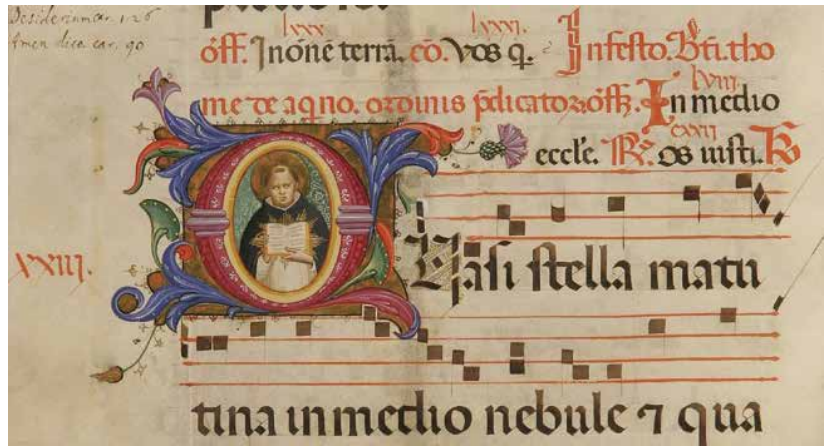 Desiderium car. 126
Amen dica car. 90
lxxx lxxxi.
off. In onē terrā. co. Vos q. In festo. Bti. tho
lviii
me de aqno. ordinis pdicator. off. In medio
cxxii
eccle. os iusti.
xxiii.
Quasi stella matu
tina in medio nebule ⁊ qua